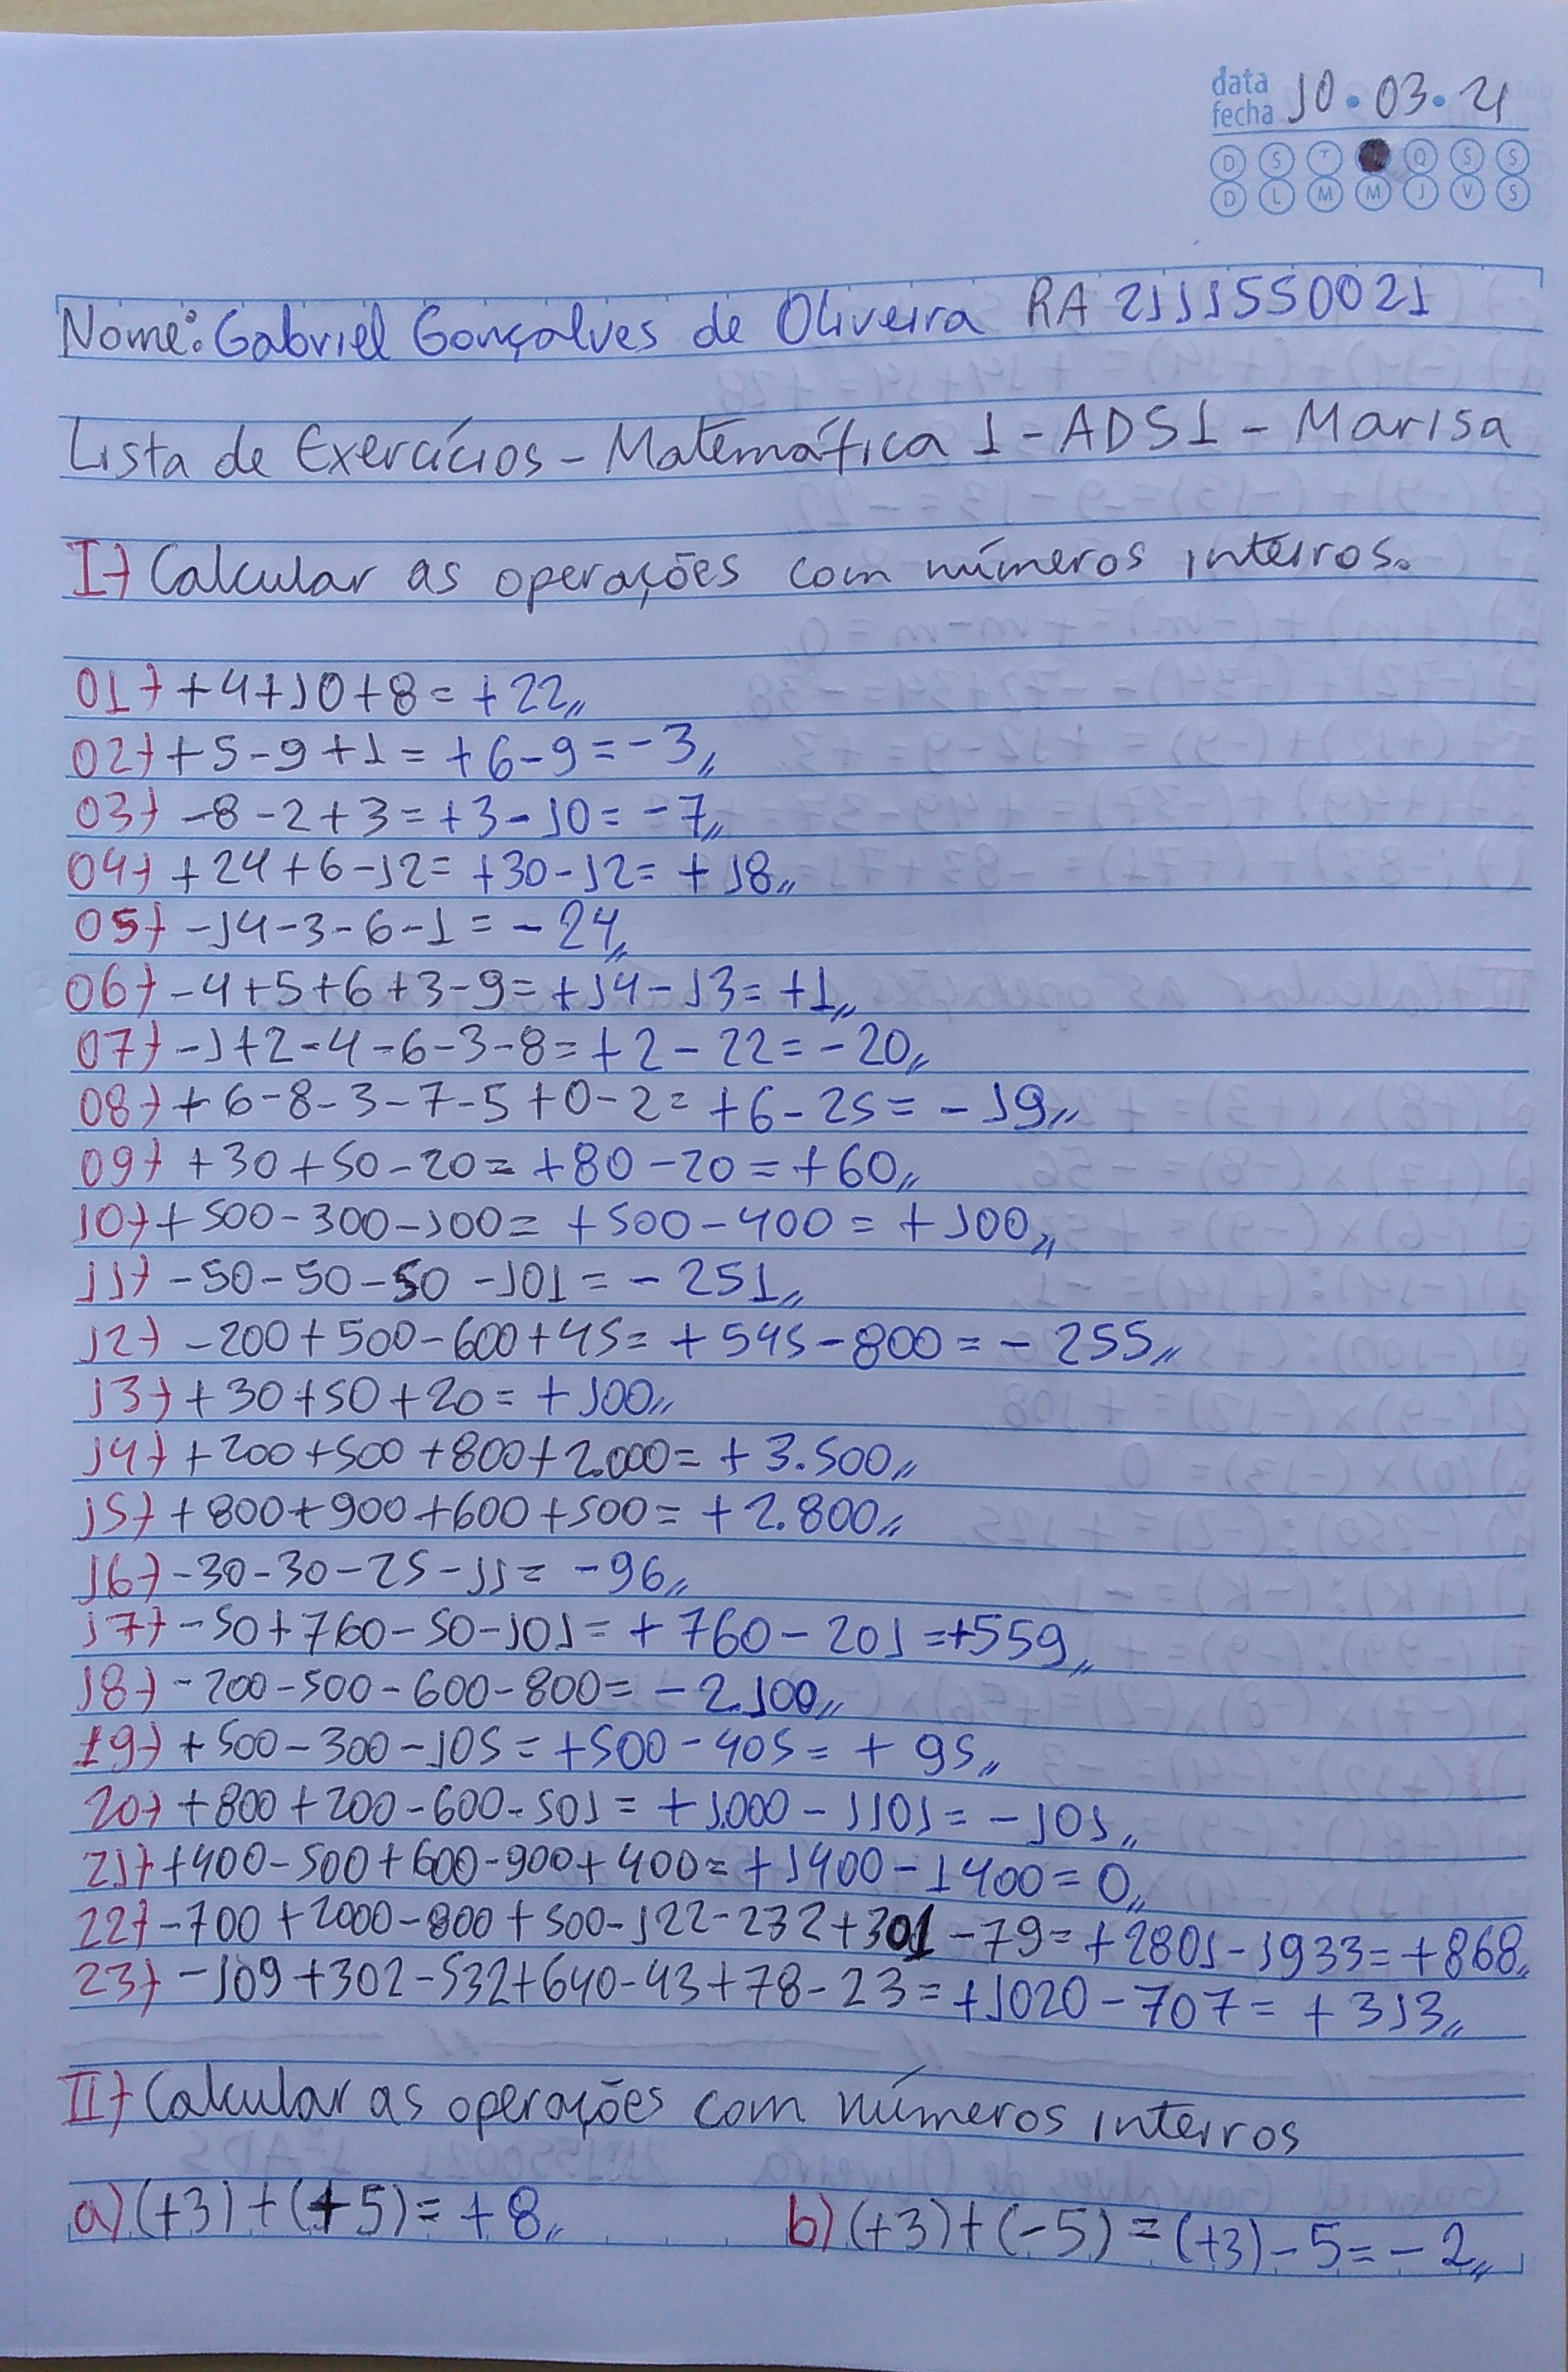 data
fecha 10 . 03 . 21
D S T Q S S
D L M M J V S
Nome: Gabriel Gonçalves de Oliveira RA 2111550021
Lista de Exercícios - Matemática 1 - ADS1 - Marisa
I) Calcular as operações com números inteiros.
01) +4+10+8= +22
02) +5-9+1= +6-9=-3
03) -8-2+3=+3-10=-7
04) +24+6-12= +30-12= +18
05) -14-3-6-1= -24
06) -4+5+6+3-9= +14-13= +1
07) -1+2-4-6-3-8= +2-22=-20
08) +6-8-3-7-5+0-2= +6-25= -19
09) +30+50-20= +80-20=+60
10) +500-300-100= +500-400= +100
11) -50-50-50-101= -251
12) -200+500-600+45= +545-800= -255
13) +30+50+20= +100
14) +200+500+800+2.000= +3.500
15) +800+900+600+500= +2.800
16) -30-30-25-11= -96
17) -50+760-50-101= +760-201=+559
18) -200-500-600-800= -2.100
19) +500-300-105= +500-405= +95
20) +800+200-600-501= +1.000-1101= -101
21) +400-500+600-900+400= +1400-1400=0
22) -700+2000-800+500-122-232+301-79= +2801-1933= +868
23) -109+302-532+640-43+78-23= +1020-707= +313
II) Calcular as operações com números inteiros
a) (+3)+(+5)= +8 b) (+3)+(-5)=(+3)-5=-2